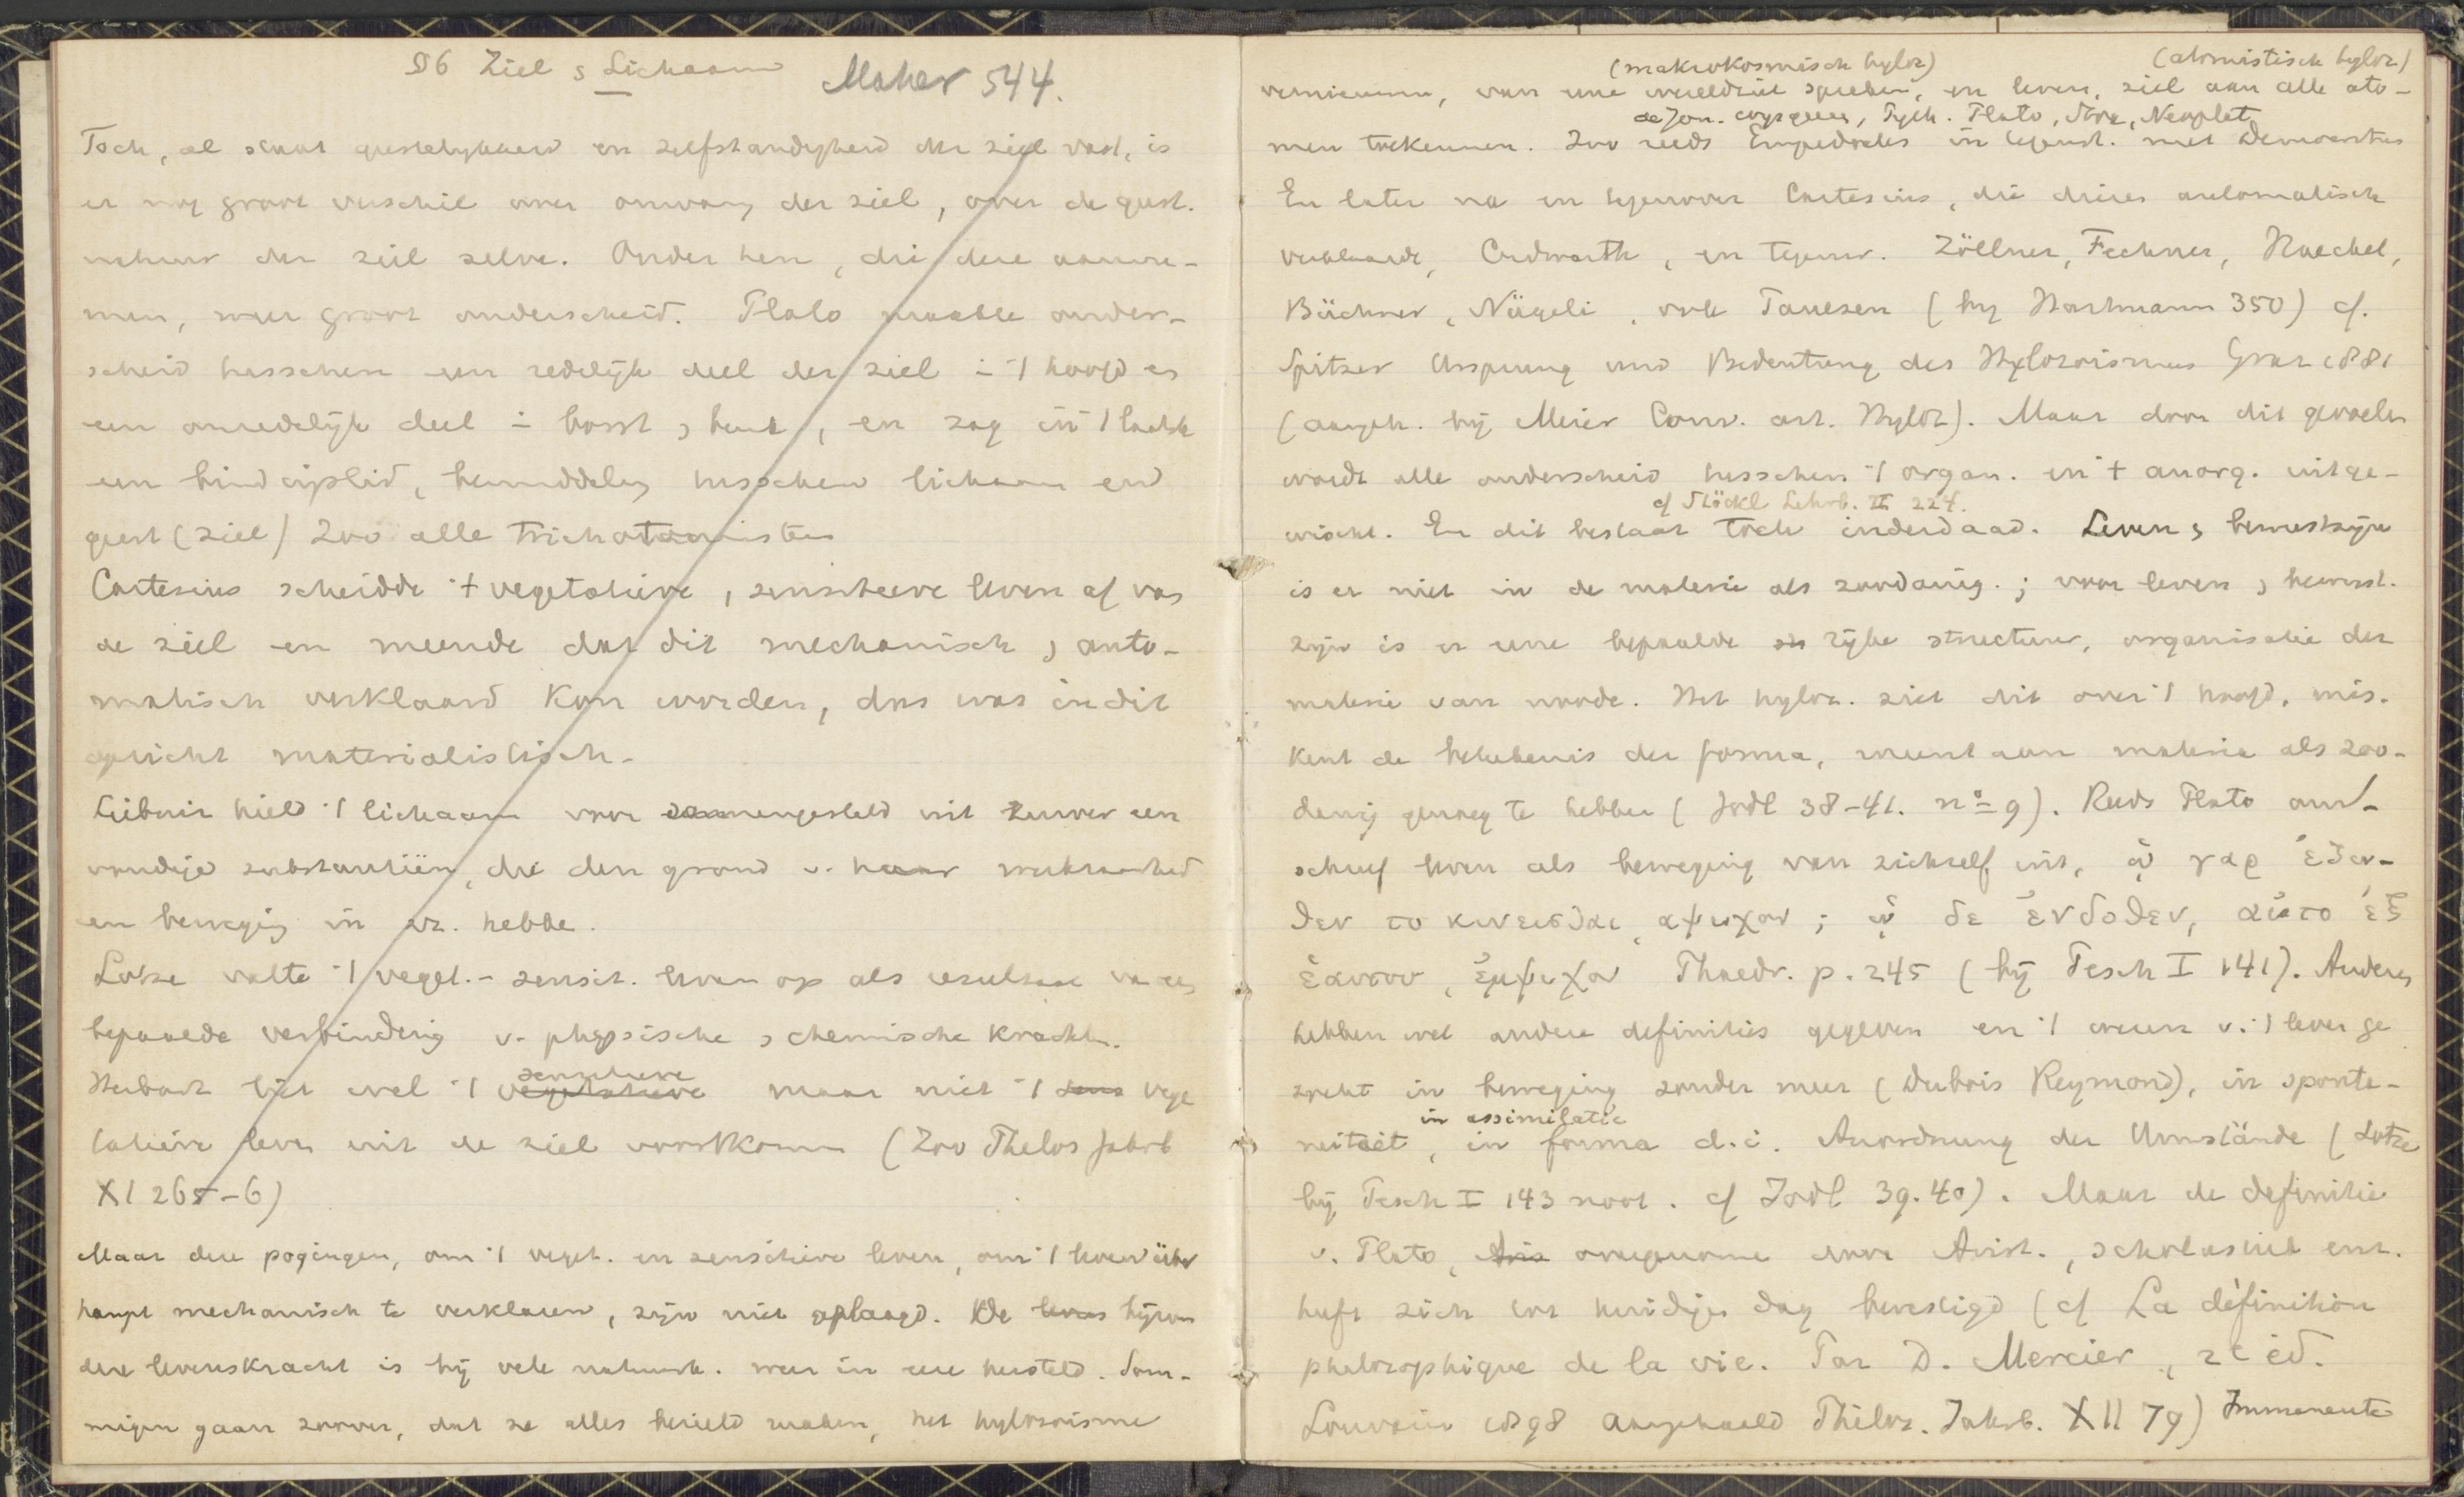 §6 Ziel & Lichaam Maher 544.
Toch, al staat geestelijkheid en zelfstandigheid der ziel vast, is
er nog groot verschil over omvang der ziel, over de geest.
natuur der ziel zelve. Onder hen, die deze aanne-
men, weer groot onderscheid. Plato maakte onder-
scheid tusschen een redelijk deel der ziel in 't hoofd en
een onredelijk deel in borst & buik, en zag in 't laatste
een bindmiddel, bemiddeling tusschen lichaam en
geest (ziel) Zoo alle trichotomisten
Cartesius scheidde 't vegetatieve, sensitieve leven af van
de ziel en meende dat dit mechanisch & auto-
matisch verklaard kon worden, dus was in dit
opzicht materialistisch.
Leibniz hield 't lichaam voor samengesteld uit zuiver een
voudige substantiën, die den grond v. haar werkzaamheid
en beweging in zich hebbe.
Lotze vatte 't veget.- sensit. leven op als resultaat van een
bepaalde verbinding v. physische & chemische krachten.
sensitieve
Herbart liet wel 't vegetatieve maar niet 't sens vege
tatieve leven uit de ziel voortkomen (Zoo Philos Jahrb
XI 265-6)
Maar deze pogingen, om 't veget. en sensitieve leven, om 't leven über
haupt mechanisch te verklaren, zijn niet geslaagd. De levens bijzon
dere levenskracht is bij vele natuurk. weer in eere hersteld. Som-
migen gaan zoover, dat ze alles bezield maken, het hylozoisme
(makrokosmisch hyloz) (atomistisch hyloz)
vernieuwen, van eene wereldziel spreken, en leven, ziel aan alle ato-
de Jon. wijsgeeren, Pyth. Plato, Stoa, Neoplat.
men toekennen. Zoo reeds Empedocles in tegenst. met Democritus
En later na en tegenover Cartesius, die dieren automatisch
verklaarde, Cudworth, en tegenw. Zöllner, Fechner, Haeckel,
Büchner, Nägeli, ook Paulsen (bij Hartmann 350) cf.
Spitzer Ursprung und Bedeutung des Hylozoismus Graz 1881
(aangeh. bij Meier Conv. art. Hyloz). Maar door dit gevoelen
wordt alle onderscheid tusschen 't organ. en 't anorg. uitge-
cf Stöckl Lehrb. II 224.
wischt. En dit bestaat toch inderdaad. Leven & bewustzijn
is er niet in de materie als zoodanig; voor leven & bewust-
zijn is er eene bepaalde rijke structuur, organisatie der
materie van noode. Het hyloz. ziet dit over 't hoofd, mis-
kent de beteekenis der forma, meent aan materie als zoo-
danig genoeg te hebben (Jodl 38-41. no 9). Reeds Plato om-
schreef leven als beweging van zichzelf uit, ᾧ γαρ ἐξω-
θεν το κινεισθαι, αψυχον; ᾧ δε ἐνδοθεν, αὐτο ἐξ
ἑαυτου, ἐμψυχον Phaedr. p. 245 (bij Pesch I 141). Anderen
hebben wel andere definities gegeven en 't wezen v. 't leven ge
zocht in beweging zonder meer (Dubois Reymond), in sponta-
in assimilatie
neiteit, in forma d.i. Anordnung der Umstände (Lotze
bij Pesch I 143 noot. cf Jodl 39.40). Maar de definitie
v. Plato, Aris overgenomen door Arist., scholastiek enz.
heeft zich tot huidigen dag bevestigd (cf La définition
philosophique de la vie. Par D. Mercier, 2e éd.
Louvain 1898 aangehaald Philos. Jahrb. XII 79) Immanente